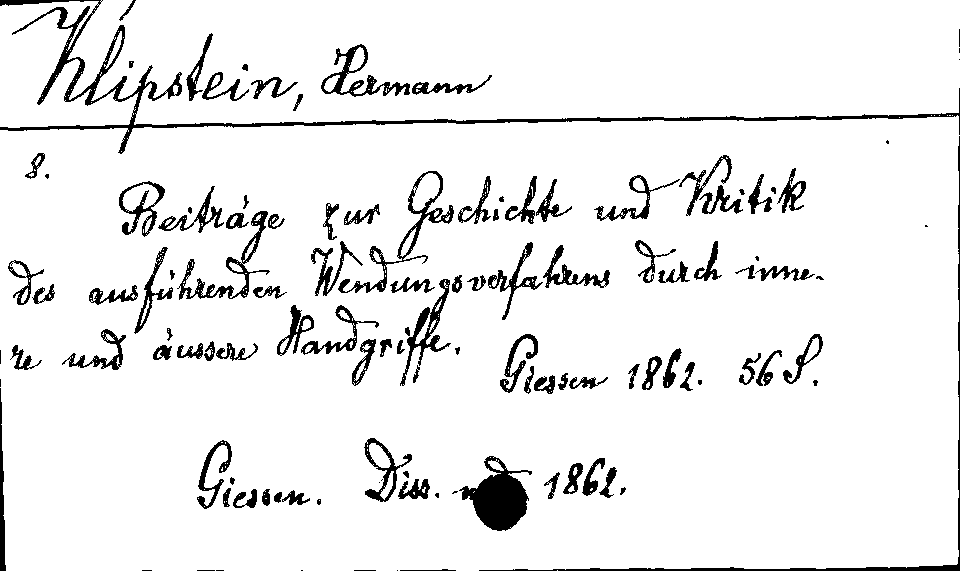 Klipstein, Hermann
8.
Beiträge zur Geschichte und Kritik
des ausführenden Wendungsverfahrens durch inne-
re und äussere Handgriffe.
Giessen 1862. 56 S.
Giessen. Diss. 1862.